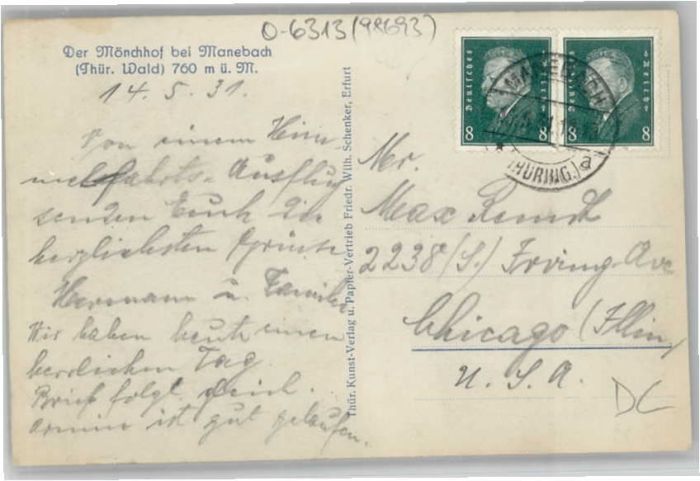 O-6313 (98693)
Der Mönchhof bei Manebach
(Thür. Wald) 760 m ü. M.
14. 5. 31.
Von einem Him-
melfahrts-Ausflug
senden Euch die
herzlichsten Grüsse
Hermann u. Familie
Wir haben heute einen
herrlichen Tag
Brief folgt gleich.
Armin ist gut gelaufen.
Thür. Kunst-Verlag u. Papier-Vertrieb Friedr. Wilh. Schenker, Erfurt
Deutsches Reich
8 8
Deutsches Reich
8 8
MANEBACH
(THÜRING.) a
Mr.
Max
2238 (S.) Irving Ave
Chicago (Illin.
U. S. A.
DC